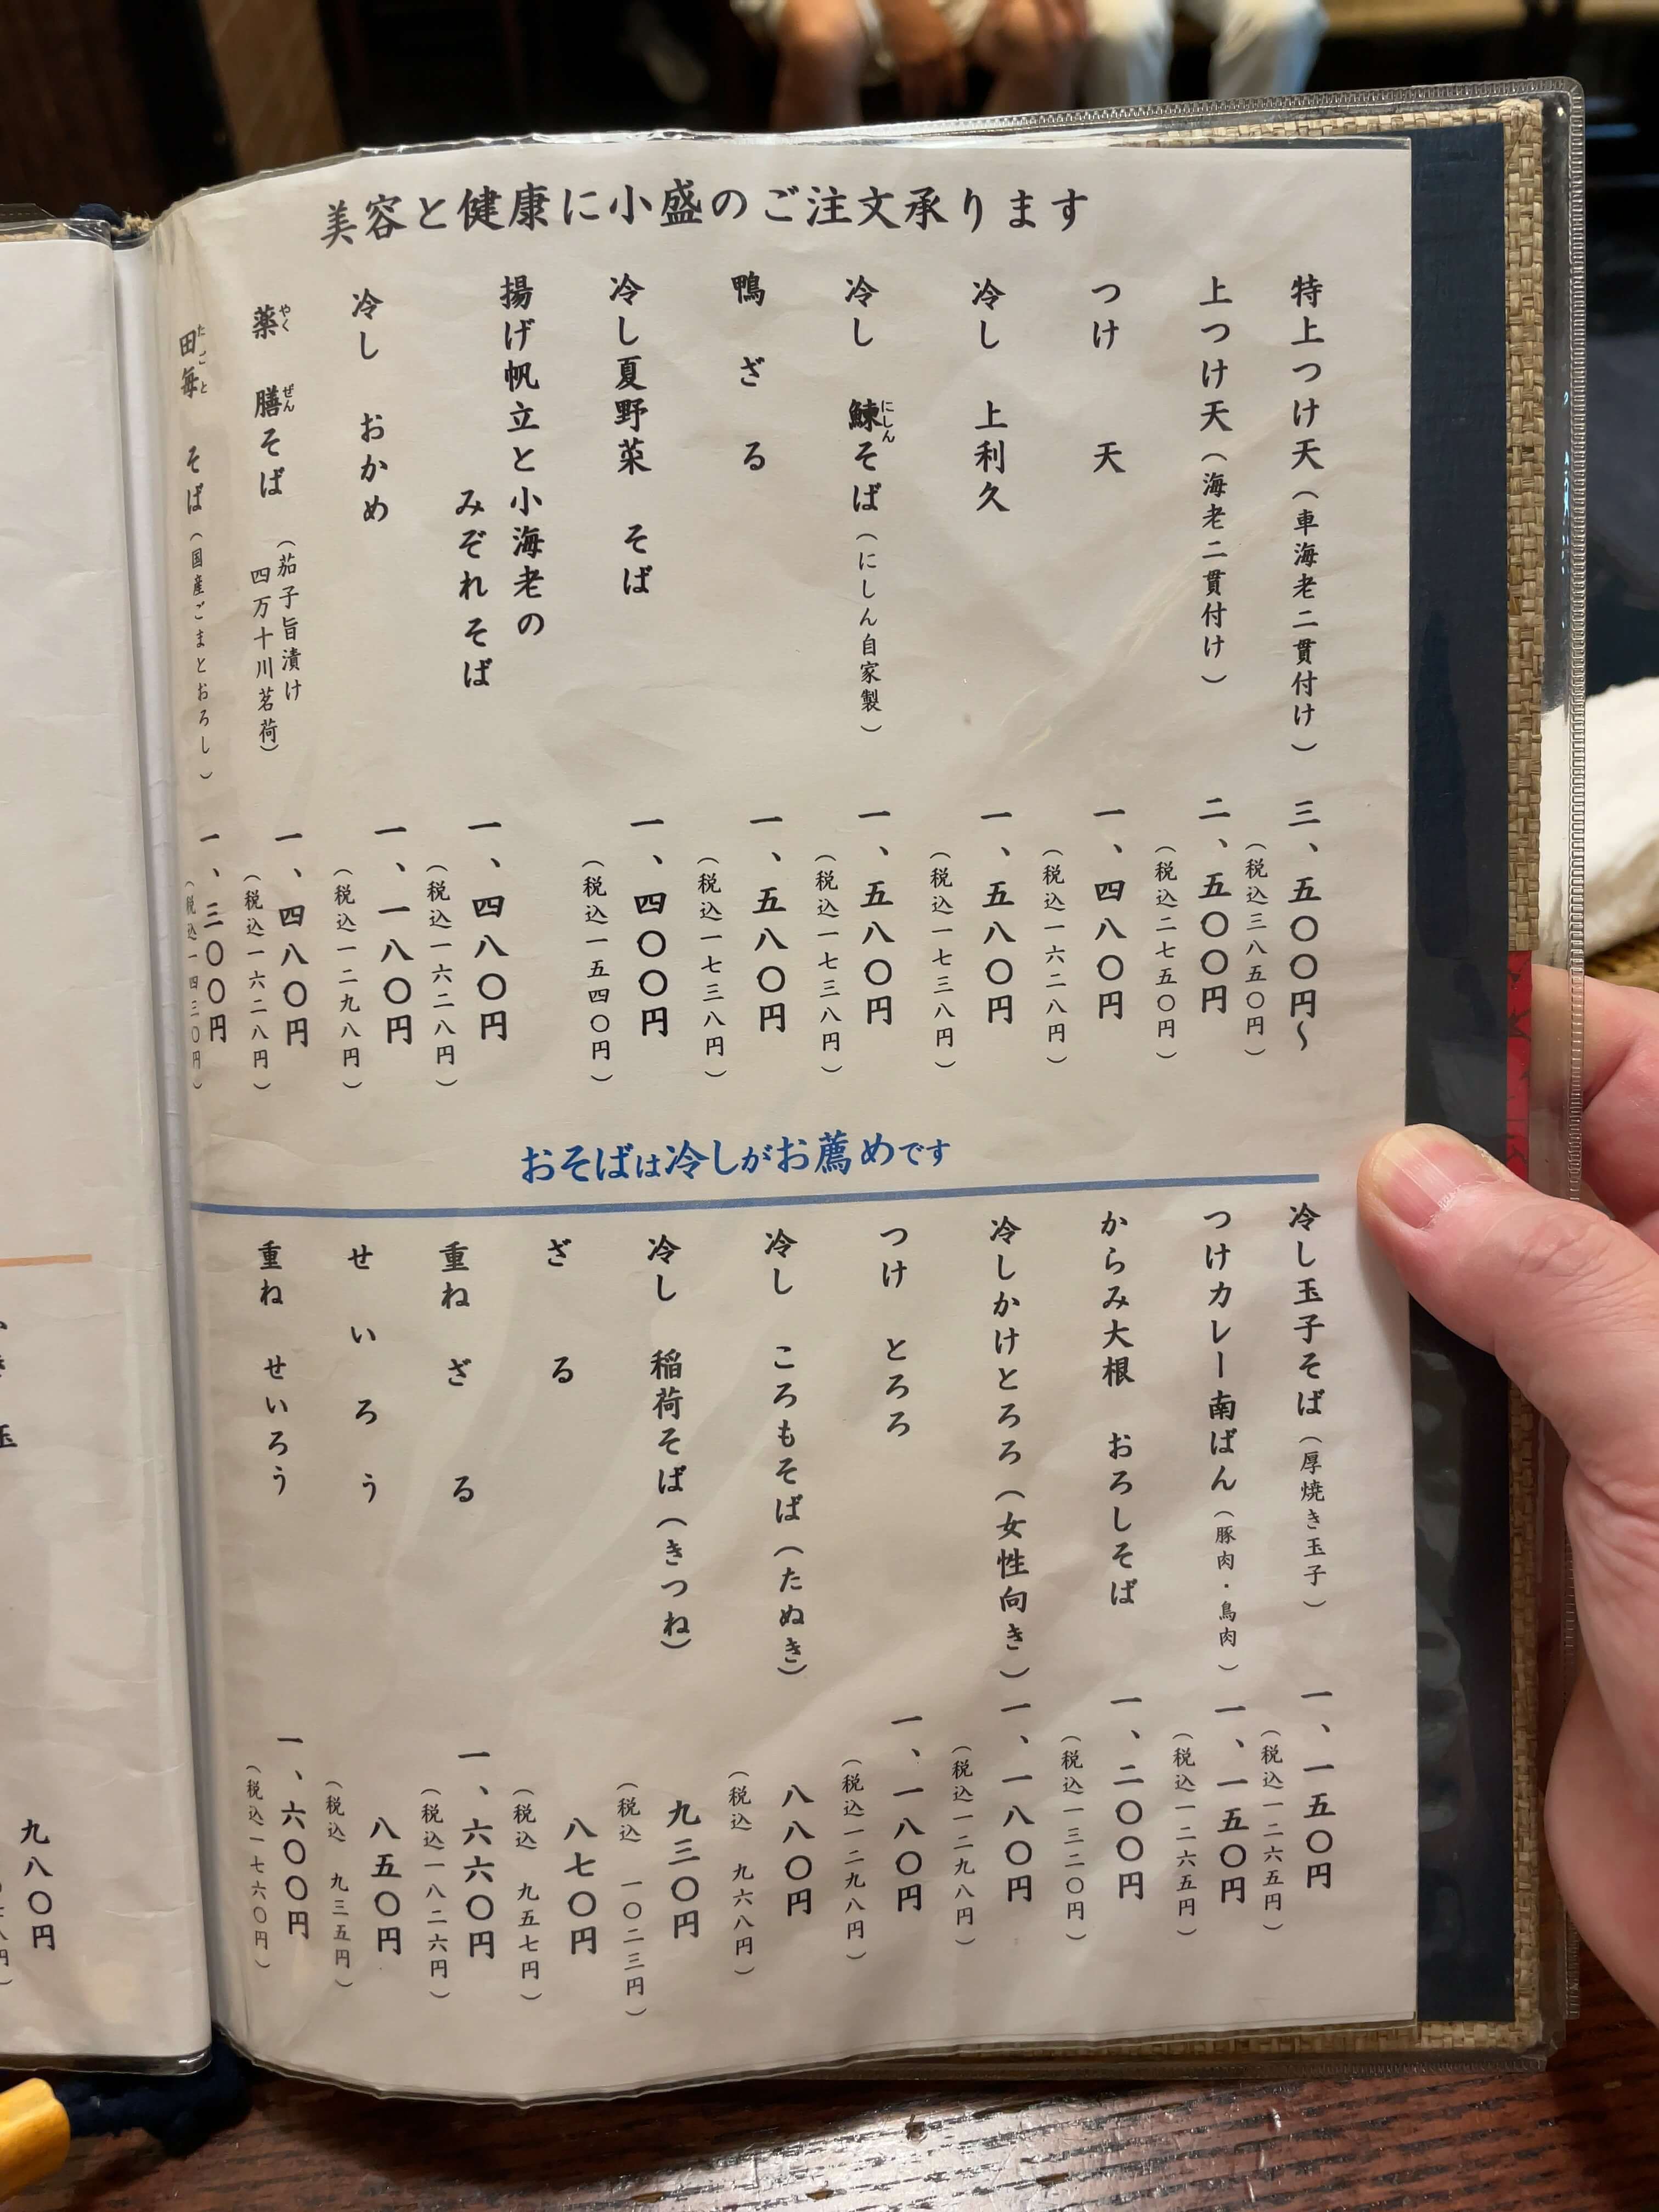 美容と健康に小盛のご注文承ります
特上つけ天(車海老二貫付け)
三、五〇〇円〜
(税込三八五〇円)
上つけ天(海老二貫付け)
二、五〇〇円
(税込二七五〇円)
つけ 天
一、四八〇円
(税込一六二八円)
冷し 上利久
一、五八〇円
(税込一七三八円)
冷し 鰊そば(にしん自家製)
にしん
一、五八〇円
(税込一七三八円)
鴨 ざ る
一、五八〇円
(税込一七三八円)
冷し夏野菜 そば
一、四〇〇円
(税込一五四〇円)
揚げ帆立と小海老の
みぞれそば
一、四八〇円
(税込一六二八円)
冷し おかめ
一、一八〇円
(税込一二九八円)
薬 膳そば
やく ぜん
(茄子旨漬け
四万十川茗荷)
一、四八〇円
(税込一六二八円)
田毎 そば(国産ごまとおろし)
たごと
一、三〇〇円
(税込一四三〇円)
おそばは冷しがお薦めです
冷し玉子そば(厚焼き玉子)
一、一五〇円
(税込一二六五円)
つけカレー南ばん(豚肉・鳥肉)
一、一五〇円
(税込一二六五円)
からみ大根 おろしそば
一、二〇〇円
(税込一三二〇円)
冷しかけとろろ(女性向き)
一、一八〇円
(税込一二九八円)
つけ とろろ
一、一八〇円
(税込一二九八円)
冷し ころもそば(たぬき)
八八〇円
(税込 九六八円)
冷し 稲荷そば(きつね)
九三〇円
(税込 一〇二三円)
ざ る
八七〇円
(税込 九五七円)
重ね ざ る
一、六六〇円
(税込一八二六円)
せ い ろ う
八五〇円
(税込 九三五円)
重ね せいろう
一、六〇〇円
(税込一七六〇円)
九八〇円